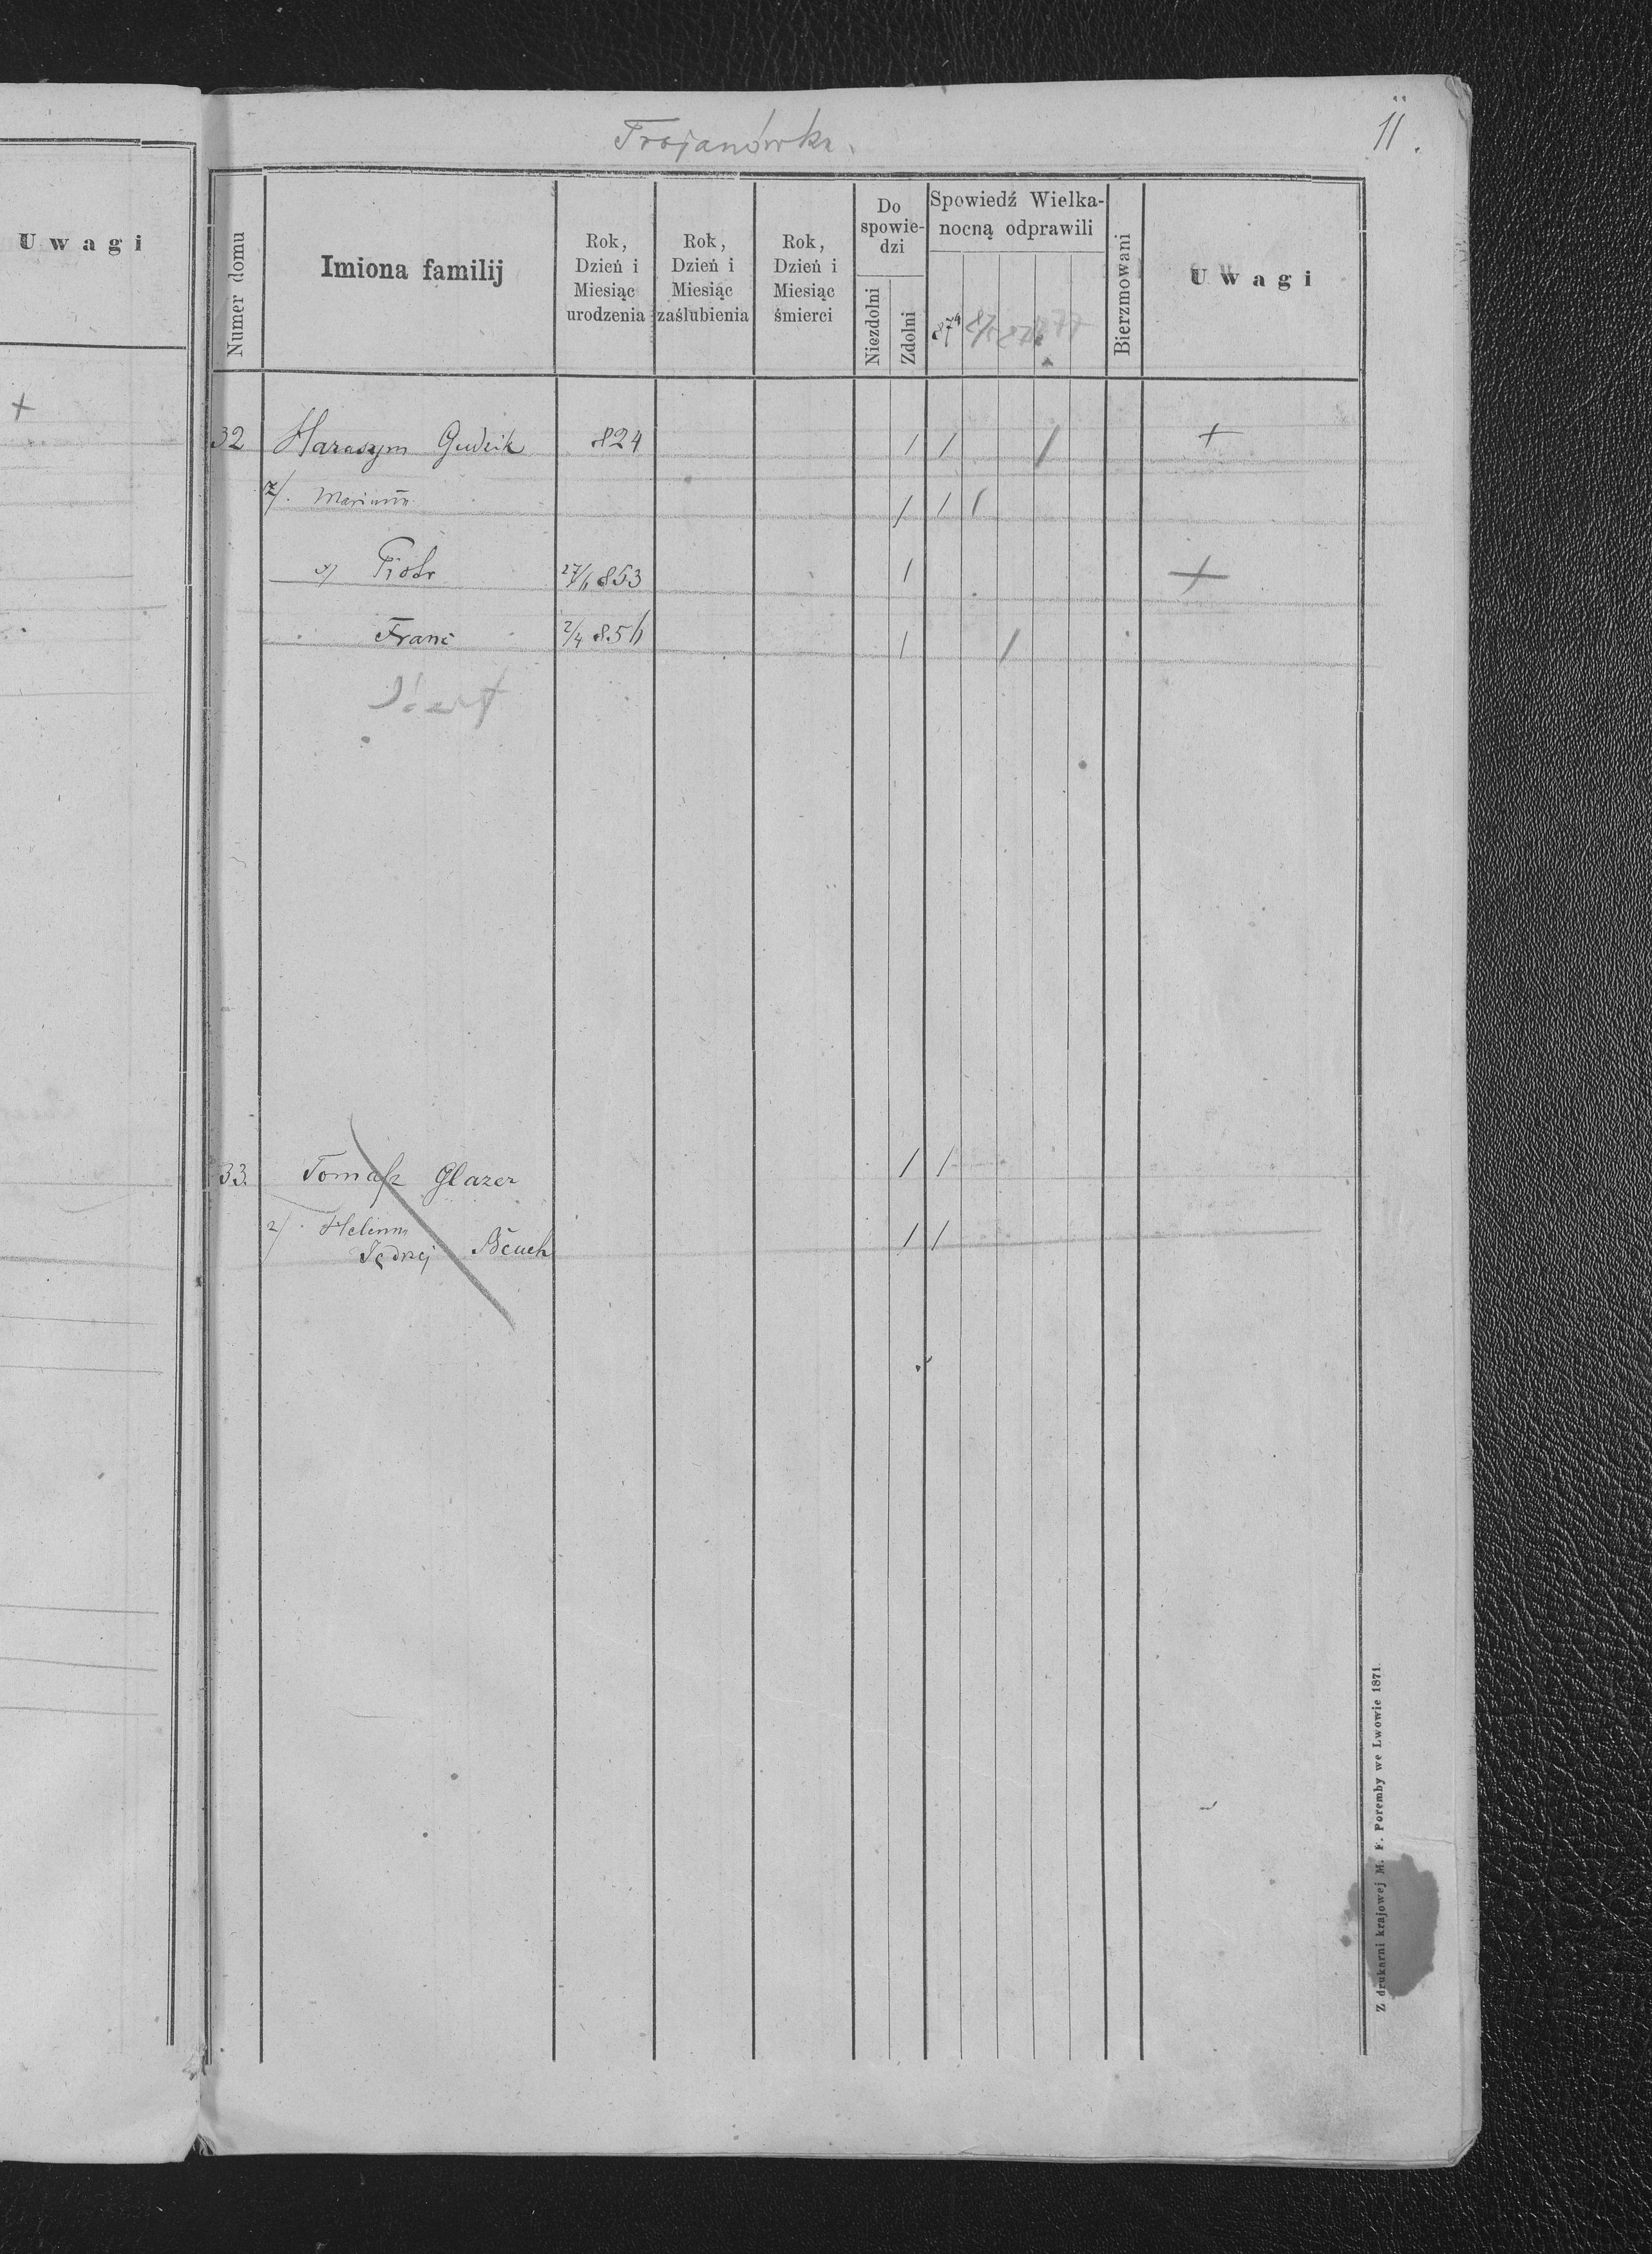 Trojanówka.
11.
Uwagi
Numer domu
Imiona familij
Rok, Dzień i Miesiąc urodzenia
Rok, Dzień i Miesiąc zaślubienia
Rok, Dzień i Miesiąc śmierci
Do spowiedzi
Niezdolni
Zdolni
Spowiedź Wielkanocną odprawili
874
877
Bierzmowani
Uwagi
+
32 Harasym Gudzik 824 / / / +
/ / /
Piotr 27/6 853 / +
Franć 2/4 856 / /
Józef
33. Tomasz Glazer / /
2/. Helena / /
Jędrzej
Z drukarni krajowej M. F. Poremby we Lwowie 1871.